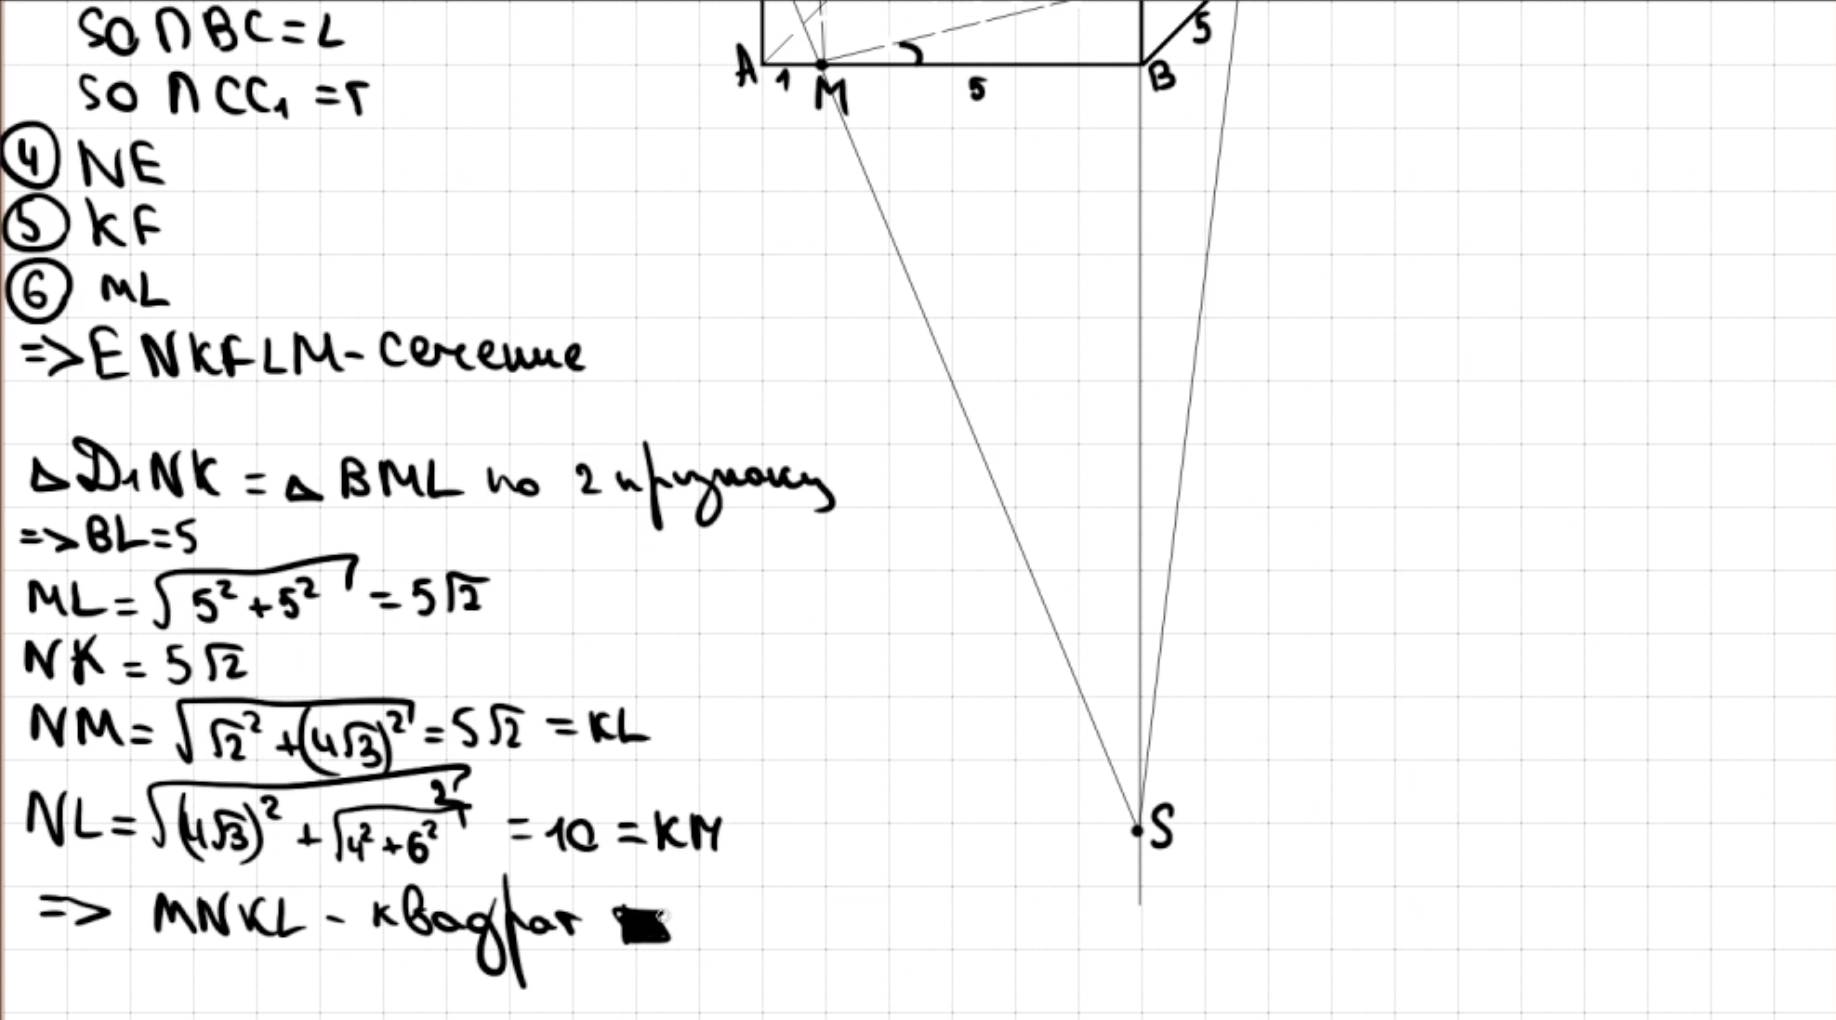 SO ∩ BC = L
SO ∩ CC₁ = F
④ NE
⑤ KF
⑥ ML
=> ENKFLM - сечение
△D₁NK = △BML по 2 признаку
=> BL = 5
ML = √(5² + 5²) = 5√2
NK = 5√2
NM = √(√2² + (4√3)²) = 5√2 = KL
NL = √((4√3)² + √(4² + 6²)²) = 10 = KM
=> MNKL - квадрат
A 1 M 5 B 5
S